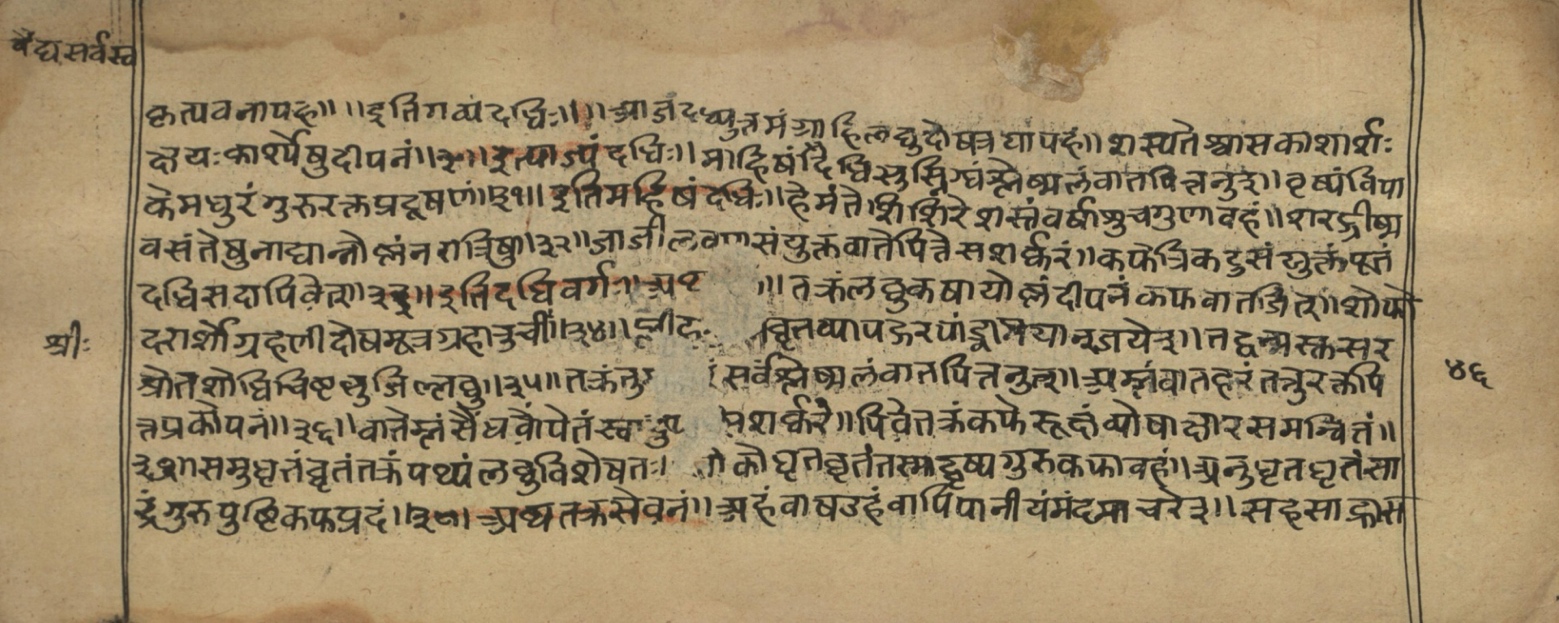 वैद्य सर्वस्व
कृत्पवनापह॥ ॥इतिगव्यंदधिः॥ ॥आजंदध्युत्तमंग्राहिलघुदोषत्रयापहं॥शस्यतेश्वासकाशार्शः
क्षयःकार्श्येषुदीपनं॥३०॥इत्याज्यंदधिः॥माहिषंदधिसुस्निग्धंश्लेष्मलंवातपित्तनुत्॥वृष्यंविपा
केमधुरंगुरुरक्तप्रदूषणं॥३१॥इतिमहिषंदधिः॥हेमंतेशिशिरेशस्तंवर्षासुचगुणावहं॥शरद्ग्रीष्म
वसंतेषुनाद्यान्नोष्णंनरात्रिषु॥३२॥जाजीलवणसंयुक्तंवातेपित्तेसशर्करं॥कफेत्रिकटुसंयुक्तं
दधिसदापिवेत्॥३३॥इतिदधिवर्गः॥अथ ॥तक्रंलघुकषायोष्णंदीपनंकफवातजित्॥शोफो
दरार्शोग्रहणीदोषमूत्रग्रहारुची॥३४॥प्लीह घृतव्यापद्गरपांड्वामयान्जयेत्॥
श्रोतशो ३५॥तक्रंतु सर्वश्लेष्मलंवातपित्तनुत्॥अम्लंवातहरंतत्तुरक्तपि
त्तप्रकोपनं॥३६॥वातेम्लंसैंधवोपेतंस्वादु सशर्करं॥पिवेतक्रंकफेरूक्षंव्योषाक्षारसमन्वितं॥
३७॥समुधृतंघृतंतक्रंपथ्यंलघुविशेषतः। कोधृतघृतंतस्माद्वृष्यगुरुकफावहं॥अनुधृतघृतंसा
द्रंगुरुपुष्टिकफप्रदं॥३८॥अथतक्रसेवनं॥ पानीयंमंदमाचरेत्॥सहसा
श्रीः
४६